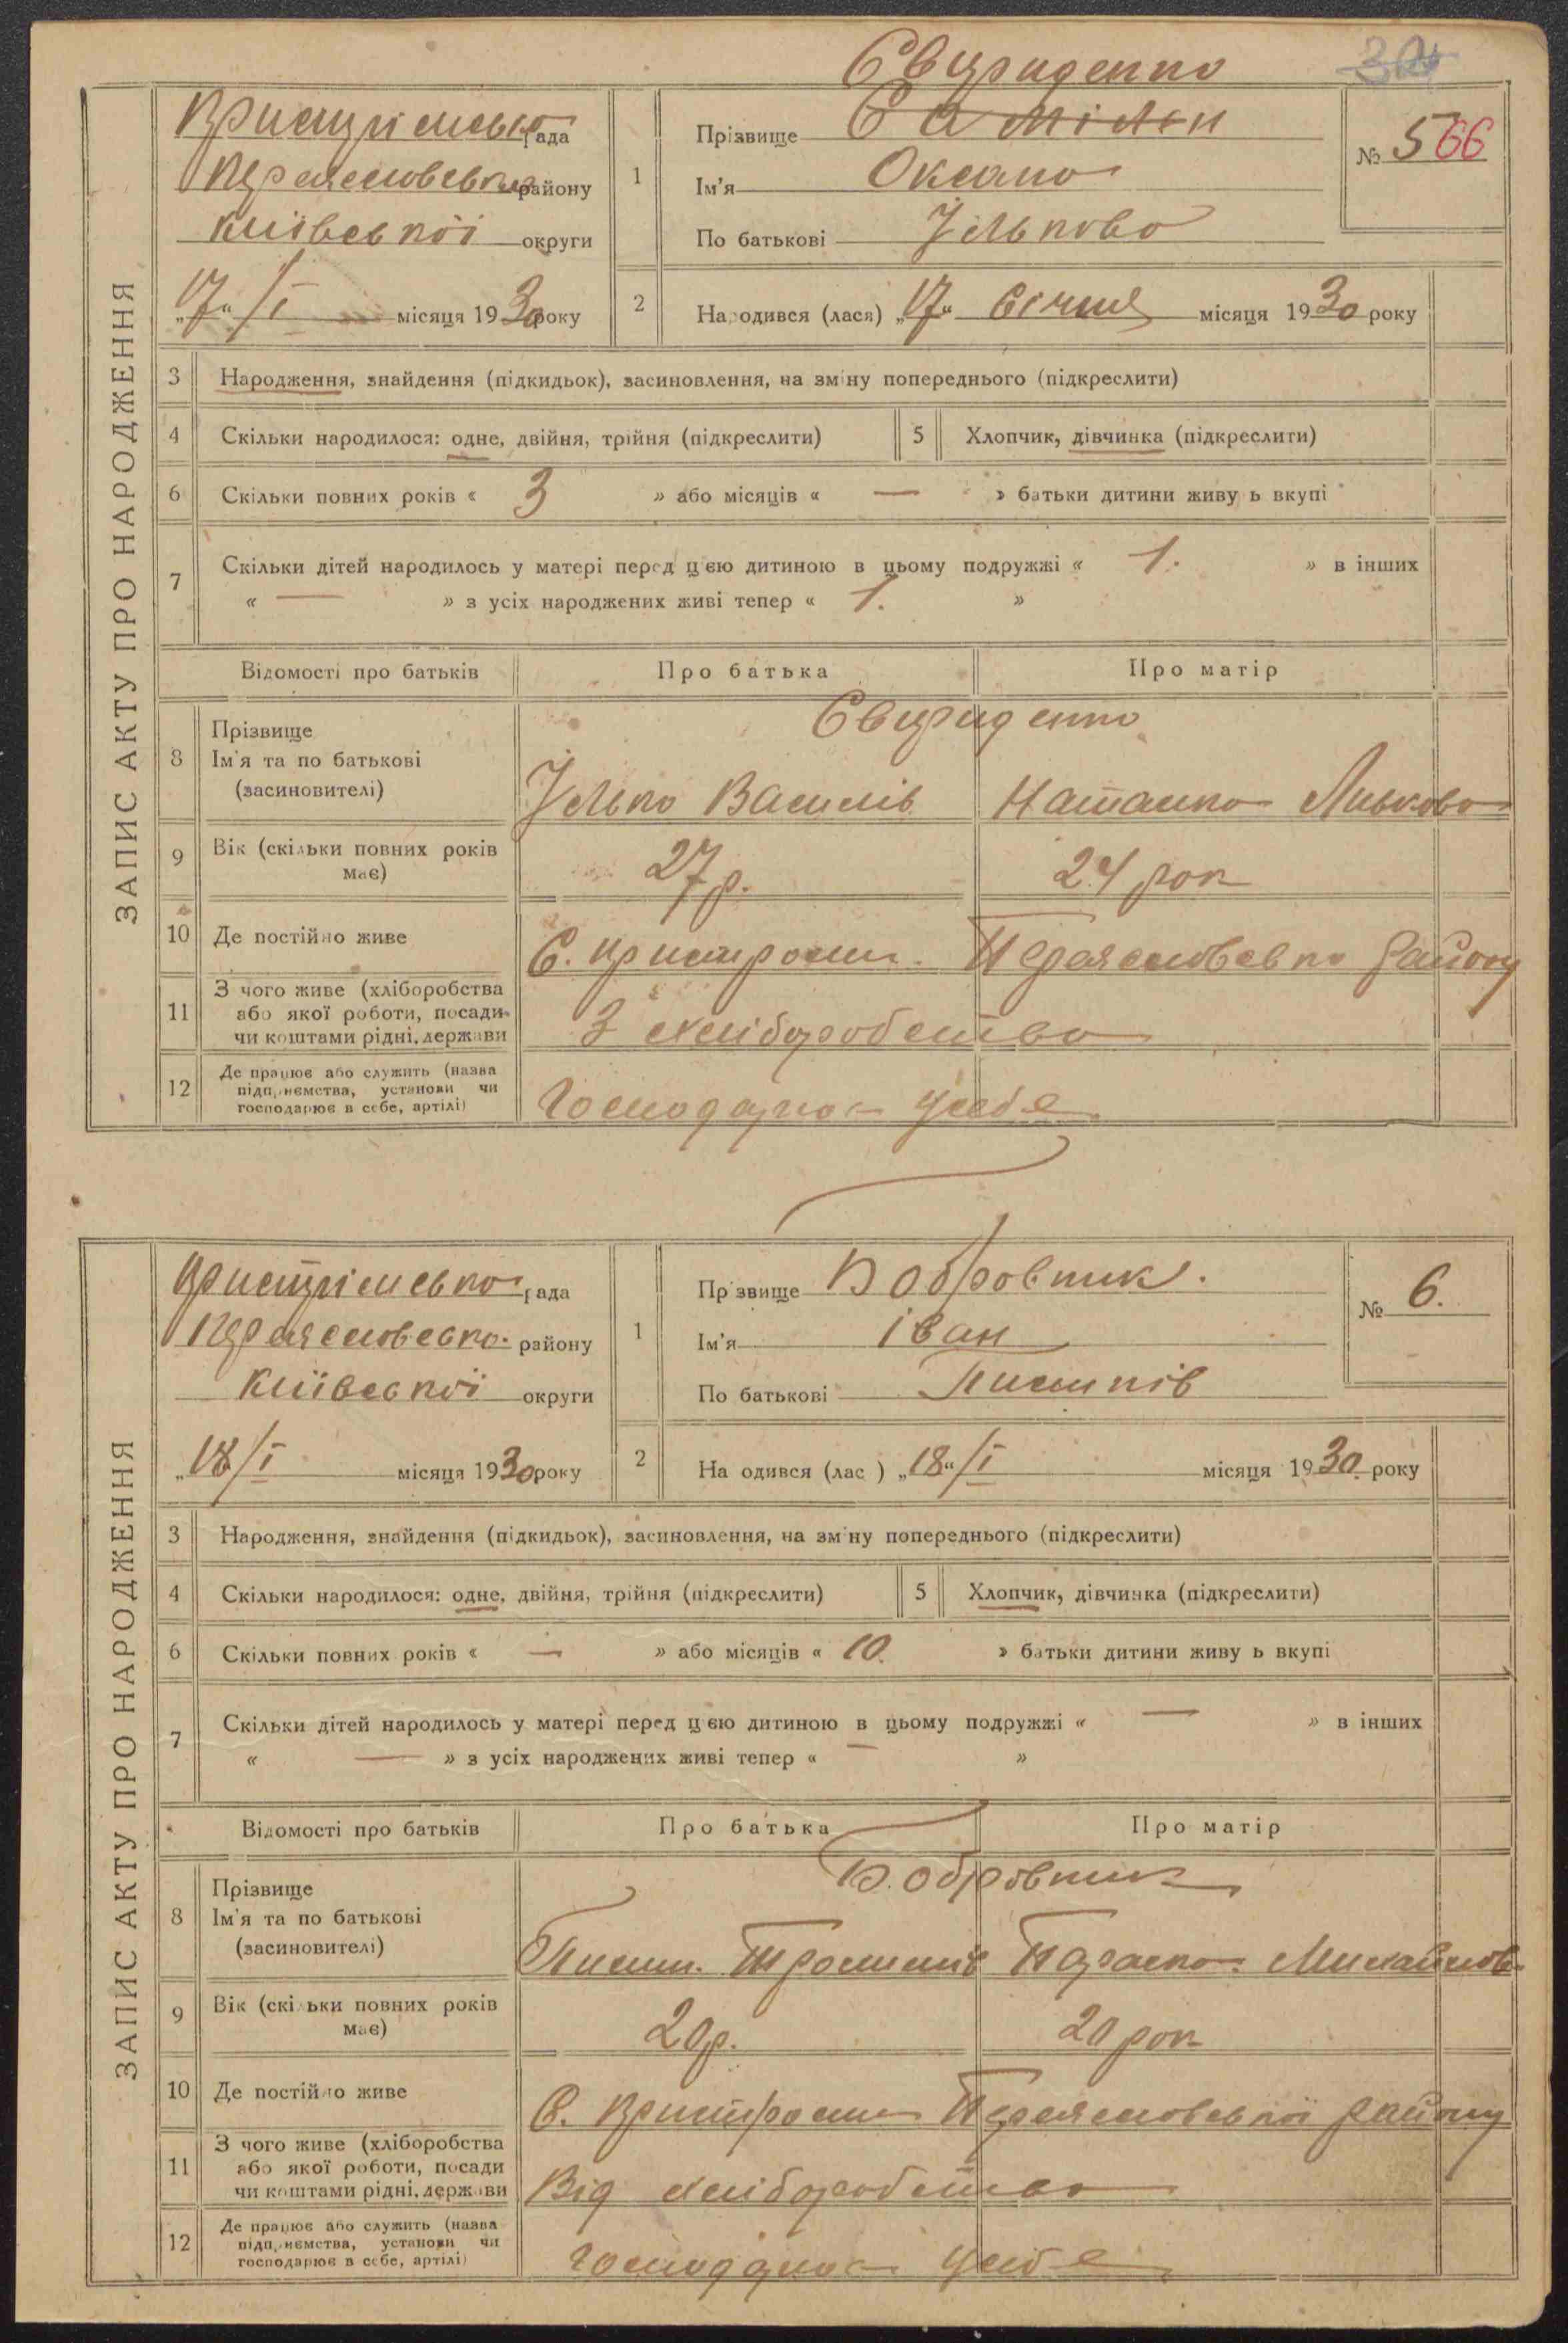 Свириденко
ЗАПИС АКТУ ПРО НАРОДЖЕННЯ
Пристрімська рада
Переяславського району
Київської округи
„17“ /I місяця 1930 року
1
Прізвище
Ім'я Оксана
По батькові Ількова
№ 566
2
Народився (лася) „17“ Січня місяця 1930 року
3 Народження, знайдення (підкидьок), засиновлення, на зміну попереднього (підкреслити)
4 Скільки народилося: одне, двійня, трійня (підкреслити) 5 Хлопчик, дівчинка (підкреслити)
6 Скільки повних років « 3 » або місяців « — » батьки дитини живу ь вкупі
7 Скільки дітей народилось у матері перед цією дитиною в цьому подружжі « 1. » в інших
« — » з усіх народжених живі тепер « 1. »
Відомості про батьків Про батька Про матір
8 Прізвище Свириденко
Ім'я та по батькові
(засиновителі) Ілько Василів Наталка Лькова
9 Вік (скільки повних років має) 27 р. 24 рок
10 Де постійно живе С. Пристроми Переяславсько району
11 З чого живе (хліборобства
або якої роботи, посади
чи коштами рідні, держави З хліборобства
12 Де працює або служить (назва
підприємства, установи чи
господарює в себе, артілі) Господарює у себе
ЗАПИС АКТУ ПРО НАРОДЖЕННЯ
Пристрімсько рада
Переяславсько. району
Київської округи
„18/I місяця 1930 року
1
Пр звище Бобровник.
Ім'я Іван
По батькові Пилипів
№ 6.
2
На одився (лас ) „18“/I місяця 1930 року
3 Народження, знайдення (підкидьок), засиновлення, на зм ну попереднього (підкреслити)
4 Скільки народилося: одне, двійня, трійня (підкреслити) 5 Хлопчик, дівчинка (підкреслити)
6 Скільки повних років « — » або місяців « 10. » батьки дитини живу ь вкупі
7 Скільки дітей народилось у матері перед цією дитиною в цьому подружжі « — » в інших
« — » з усіх народжених живі тепер « — »
Відомості про батьків Про батька Про матір
8 Прізвище Бобровник
Ім'я та по батькові
(засиновителі) Пилип. Трохимів Параска Михайлов.
9 Вік (скі ьки повних років має) 20 р. 20 рок
10 Де постійно живе С. Пристроми Переяславської району
11 З чого живе (хліборобства
або якої роботи, посади
чи коштами рідні, держави Від хліборобства
12 Де працює або служить (назва
підприємства, установи чи
господарює в себе, артілі) Господарює у себе